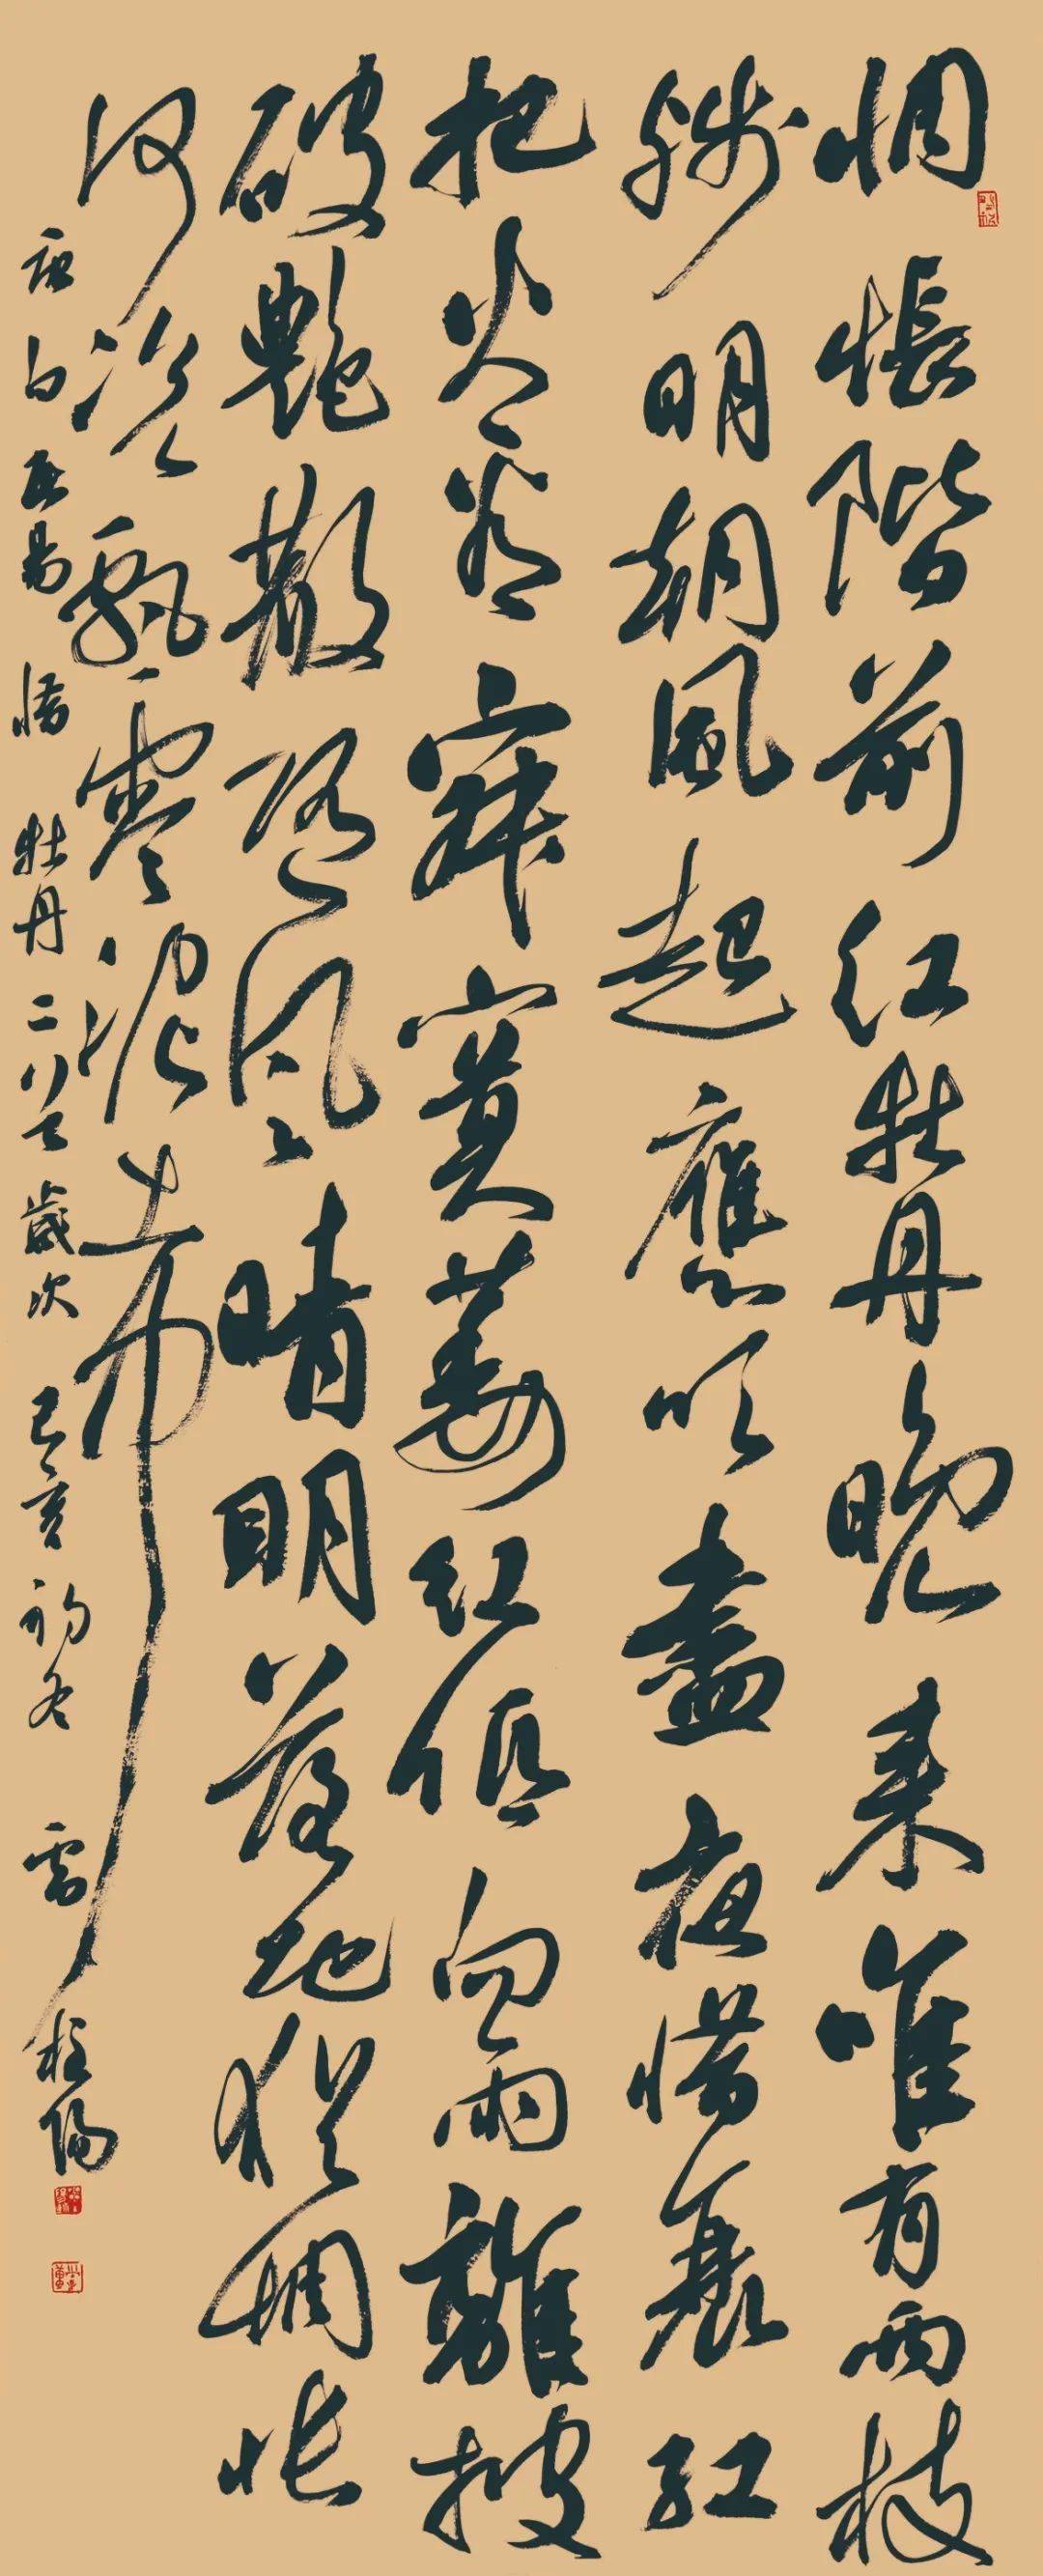 惆悵階前紅牡丹晚來唯有兩枝
殘明朝風起應吹盡夜惜衰紅
把火看寂寞萎紅低向雨離披
破艷散隨風晴明落地猶惆悵
何況飄零泥土中
唐白居易惜牡丹 歲次己亥初冬